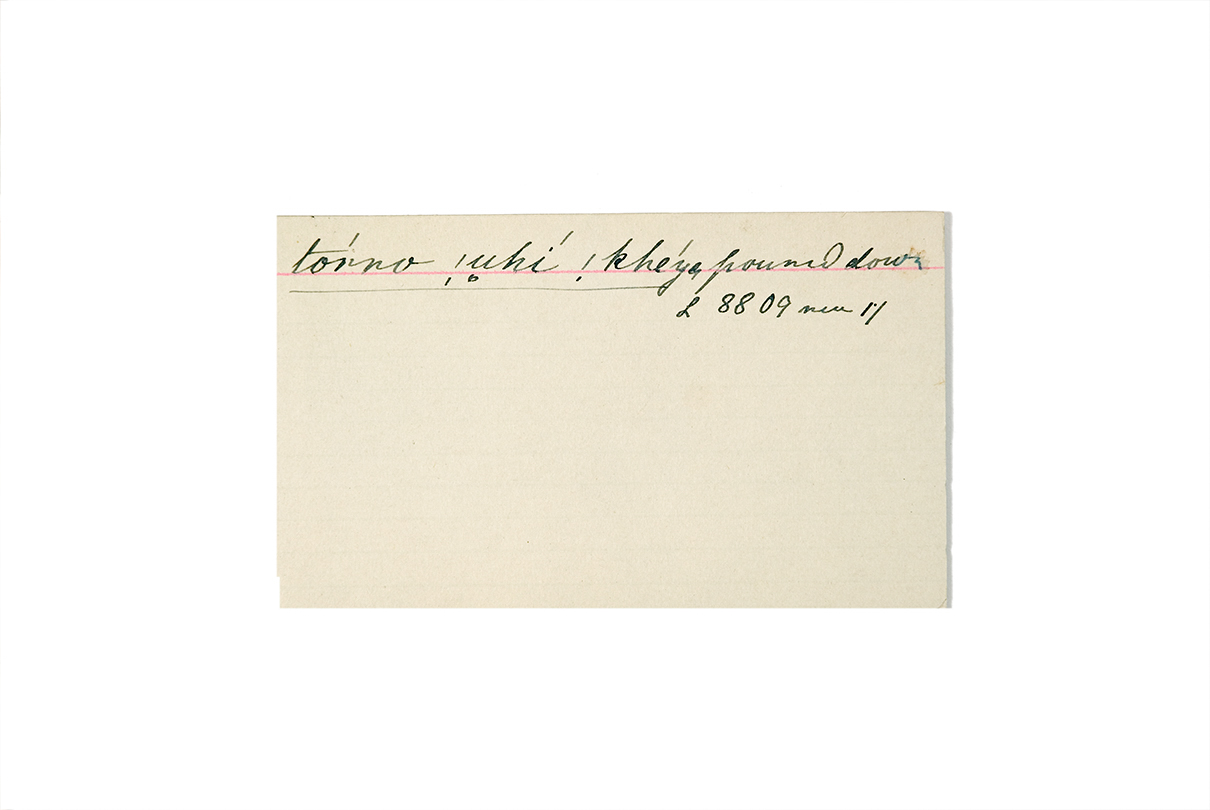 tórno !u̥hí !khéya̱ pound down
L 8809 rev 1/